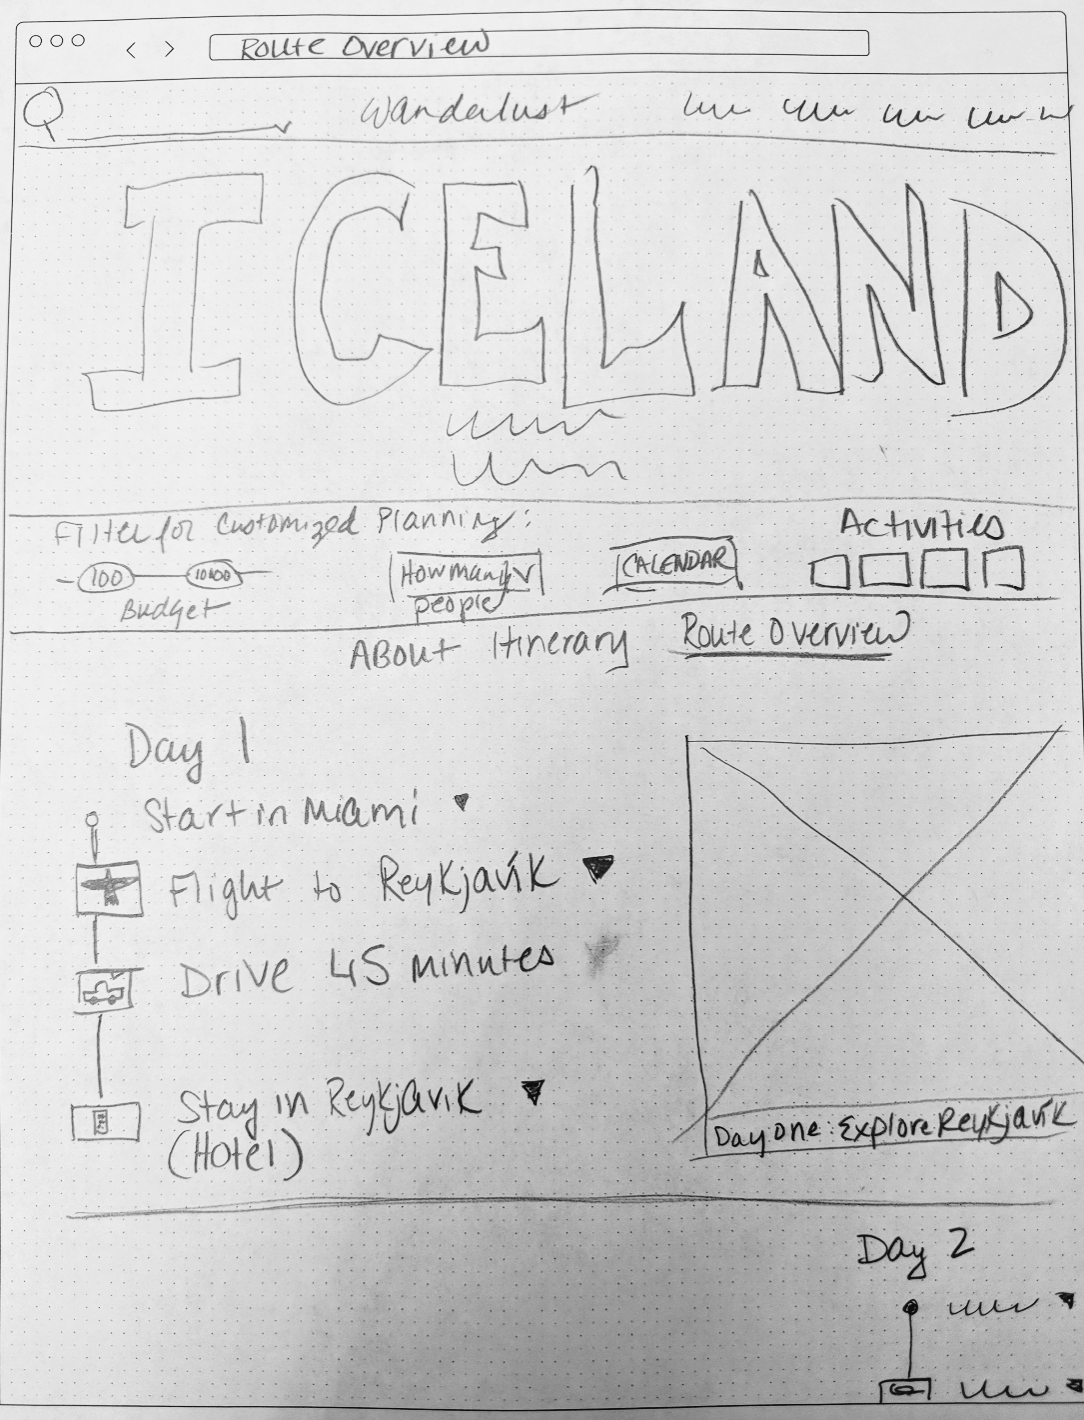 Route Overview
Wanderlust
ICELAND
Filter for Customized Planning:
Activities
100
10000
How many
people
CALENDAR
Budget
About Itinerary Route Overview
Day 1
Start in Miami
Flight to Reykjavík
Drive 45 minutes
Stay in Reykjavik
(Hotel)
Day one: Explore Reykjavík
Day 2